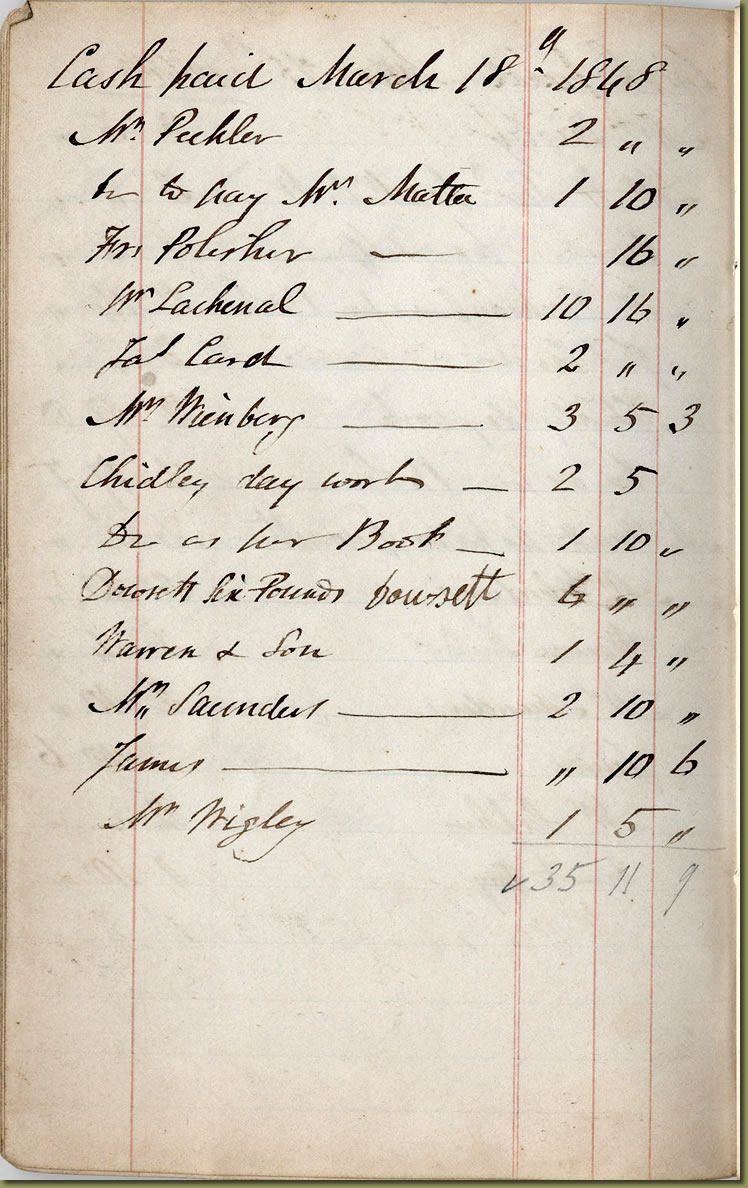 Cash paid March 18th 1848
9
Mr Peehler 2 " "
Do to pay Mrs Matta 1 10 "
Frs Polisher — 16 "
Mr Lachenal — 10 16 "
Jas Card — 2 " "
Mr Wienberg — 3 5 3
Chidley day work — 2 5
Do as per Book — 1 10 "
Dowsett Six Pounds Dowsett 6 " "
Warren & Son 1 4 "
Mr Saunders — 2 10 "
James — " 10 6
Mr Wigley 1 5 "
✓ 35 11 9